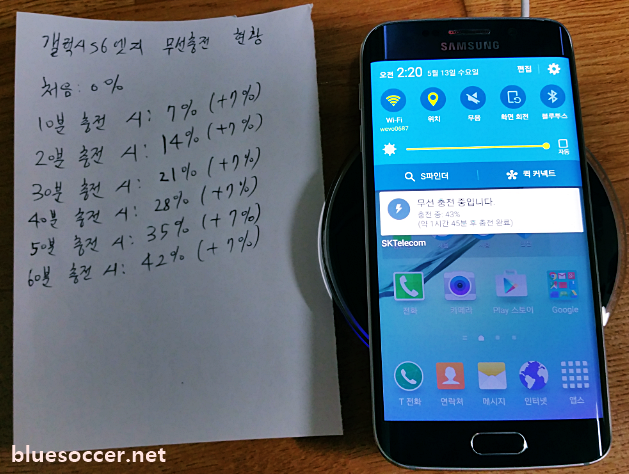 갤럭시S6엣지 무선충전 현황
처음: 0%
10분 충전 시: 7% (+7%)
20분 충전 시: 14% (+7%)
30분 충전 시: 21% (+7%)
40분 충전 시: 28% (+7%)
50분 충전 시: 35% (+7%)
60분 충전 시: 42% (+7%)
SAMSUNG
오전 2:20 5월 13일 수요일 편집
Wi-Fi 위치 무음 화면 회전 블루투스
wevo06R7
자동
S파인더 퀵 커넥트
무선 충전 중입니다.
충전 중: 43%
(약 1시간 45분 후 충전 완료)
SKTelecom
전화 카메라 Play 스토어 Google
T 전화 연락처 메시지 인터넷 앱스
bluesoccer.net